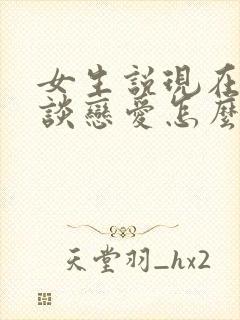 女生説現在
談戀愛怎麼
天堂羽_hx2